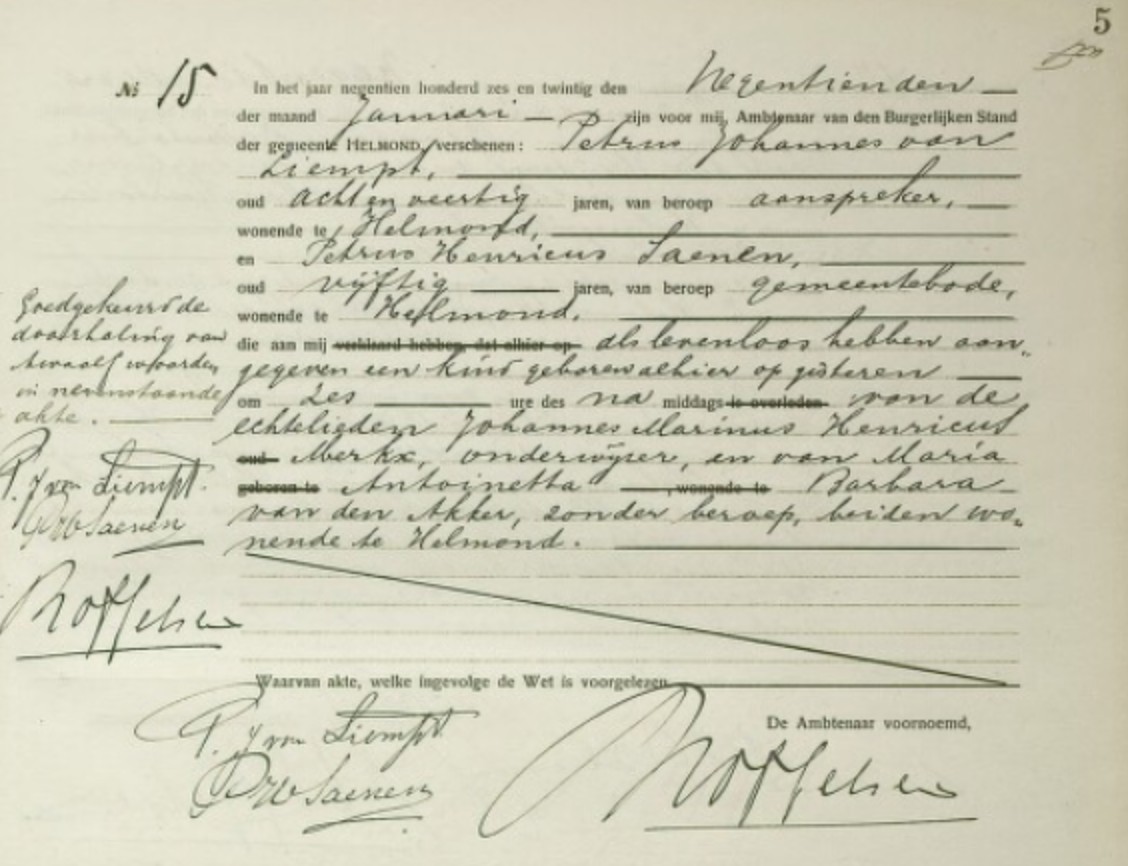 5
No 15 In het jaar negentien honderd zes en twintig den Negentienden
der maand Januari zijn voor mij, Ambtenaar van den Burgerlijken Stand
der gemeente HELMOND, verschenen: Petrus Johannes van
Liempt,
oud acht en veertig jaren, van beroep aanspreker,
wonende te Helmond,
en Petrus Henricus Saenen,
oud vijftig jaren, van beroep gemeentebode,
wonende te Helmond.
die aan mij verklaard hebben, dat alhier op als levenloos hebben aan„
gegeven een kind geboren alhier op gisteren
om zes ure des na middags is overleden van de
echtelieden Johannes Marinus Henricus
oud Merkx, onderwijzer, en van Maria
geboren te Antoinetta , wonende te Barbara
van den Akker, zonder beroep, beiden wo„
nende te Helmond.
Goedgekeurd de
doorhaling van
twaalf woorden
in nevenstaande
akte.
P. J van Liempt.
PH Saenen
Waarvan akte, welke ingevolge de Wet is voorgelezen
De Ambtenaar voornoemd,
P. J van Liempt.
PH Saenen